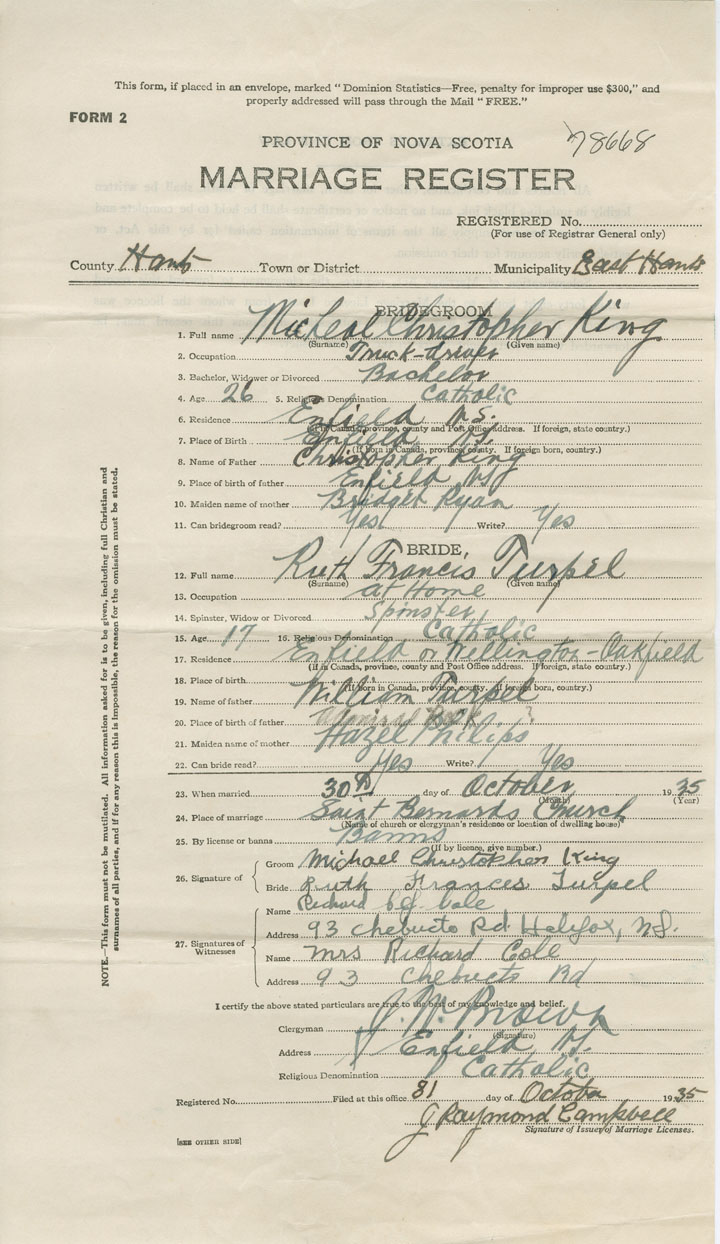 This form, if placed in an envelope, marked "Dominion Statistics—Free, penalty for improper use $300," and
properly addressed will pass through the Mail "FREE."
FORM 2
78668
PROVINCE OF NOVA SCOTIA
MARRIAGE REGISTER
REGISTERED No.
(For use of Registrar General only)
County Hants Town or District Municipality East Hants
BRIDEGROOM
1. Full name Micheal Christopher King
(Surname) (Given name)
2. Occupation Truck-driver
3. Bachelor, Widower or Divorced Bachelor
4. Age 26 5. Religious Denomination Catholic
6. Residence Enfield N.S.
(If in Canada, province, county and Post Office address. If foreign, state country.)
7. Place of Birth Enfield N.S.
(If born in Canada, province, county. If foreign born, country.)
8. Name of Father Christopher King
9. Place of birth of father Enfield NS
10. Maiden name of mother Bridget Ryan
11. Can bridegroom read? Yes Write? Yes
BRIDE
12. Full name Ruth Francis Turpel
(Surname) (Given name)
13. Occupation at Home
14. Spinster, Widow or Divorced Spinster
15. Age 17 16. Religious Denomination Catholic
17. Residence Enfield or Wellington-Oakfield
(If in Canada, province, county and Post Office address. If foreign, state country.)
18. Place of birth
(If born in Canada, province, county. If foreign born, country.)
19. Name of father William Turpel
20. Place of birth of father Admiral Rock ?
21. Maiden name of mother Hazel Philips
22. Can bride read? Yes Write? Yes
23. When married 30th day of October 1935
(Month) (Year)
24. Place of marriage Saint Bernards Church
(Name of church or clergyman's residence or location of dwelling house)
25. By license or banns Banns
(If by licence, give number.)
26. Signature of
Groom Michael Christopher King
Bride Ruth Frances Turpel
27. Signatures of Witnesses
Name Richard
Address 93 Chebucto Rd Halifax, N.S.
Name Mrs Richard Cole
Address 93 Chebucto Rd
I certify the above stated particulars are true to the best of my knowledge and belief.
Clergyman J. W. Brown
(Signature)
Address Enfield N.S.
Religious Denomination Catholic
Registered No. Filed at this office 31 day of October 1935
J Raymond Campbell
Signature of Issuer of Marriage Licenses.
[SEE OTHER SIDE]
NOTE.—This form must not be mutilated. All information asked for is to be given, including full Christian and
surnames of all parties, and if for any reason this is impossible, the reason for the omission must be stated.